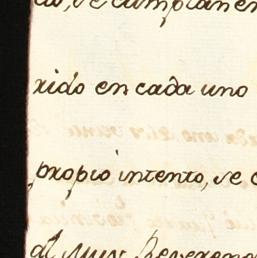 do, se cumplan en
xido en cada uno
propio intento, se
al Muy Reveren